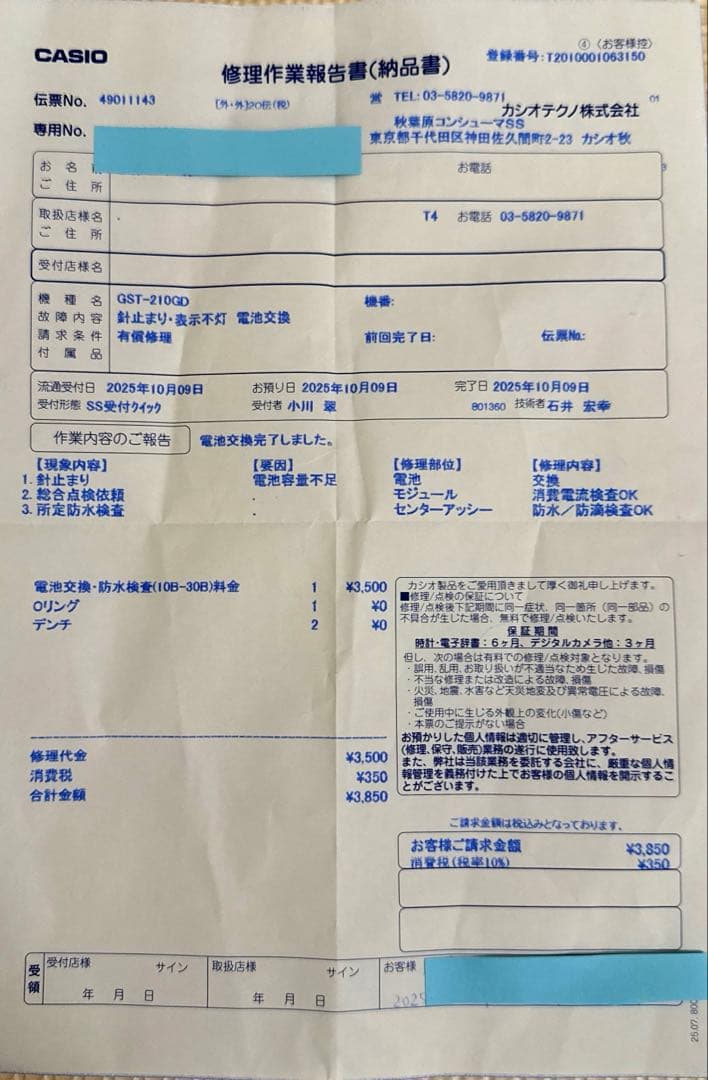 ④(お客様控)
CASIO
修理作業報告書(納品書)
登録番号:T2010001063150
伝票No. 49011143
[外・外]20伝(税)
営 TEL:03-5820-9871
カシオテクノ株式会社
01
専用No.
秋葉原コンシューマSS
東京都千代田区神田佐久間町2-23 カシオ秋
お名
ご住所
お電話
取扱店様名
ご住所
T4 お電話 03-5820-9871
受付店様名
機種名 GST-210GD 機番:
故障内容 針止まり・表示不灯 電池交換
請求条件 有償修理 前回完了日: 伝票No.:
付属品
流通受付日 2025年10月09日 お預り日 2025年10月09日 完了日 2025年10月09日
受付形態 SS受付クイック 受付者 小川 翠 801360 技術者 石井 宏幸
作業内容のご報告 電池交換完了しました。
【現象内容】 【要因】 【修理部位】 【修理内容】
1. 針止まり 電池容量不足 電池 交換
2. 総合点検依頼 . モジュール 消費電流検査OK
3. 所定防水検査 . センターアッシー 防水/防滴検査OK
電池交換・防水検査(10B-30B)料金 1 ¥3,500
Oリング 1 ¥0
デンチ 2 ¥0
カシオ製品をご愛用頂きまして厚く御礼申し上げます。
■修理/点検の保証について
修理/点検後下記期間に同一症状、同一箇所(同一部品)の
不具合が生じた場合、無料で修理/点検いたします。
保証期間
時計・電子辞書:6ヶ月、デジタルカメラ他:3ヶ月
但し、次の場合は有料での修理/点検対象となります。
・誤用、乱用、お取り扱いが不適当なため生じた故障、損傷
・不当な修理または改造による故障、損傷
・火災、地震、水害など天災地変及び異常電圧による故障、
損傷
・ご使用中に生じる外観上の変化(小傷など)
・本票のご提示がない場合
お預かりした個人情報は適切に管理し、アフターサービス
(修理、保守、販売)業務の遂行に使用致します。
また、弊社は当該業務を委託する会社に、厳重な個人情
報管理を義務付けた上でお客様の個人情報を開示するこ
とがございます。
修理代金 ¥3,500
消費税 ¥350
合計金額 ¥3,850
ご請求金額は税込みとなっております。
お客様ご請求金額 ¥3,850
消費税(税率10%) ¥350
受領
受付店様 サイン
年 月 日
取扱店様 サイン
年 月 日
お客様
2025
25.07. 800